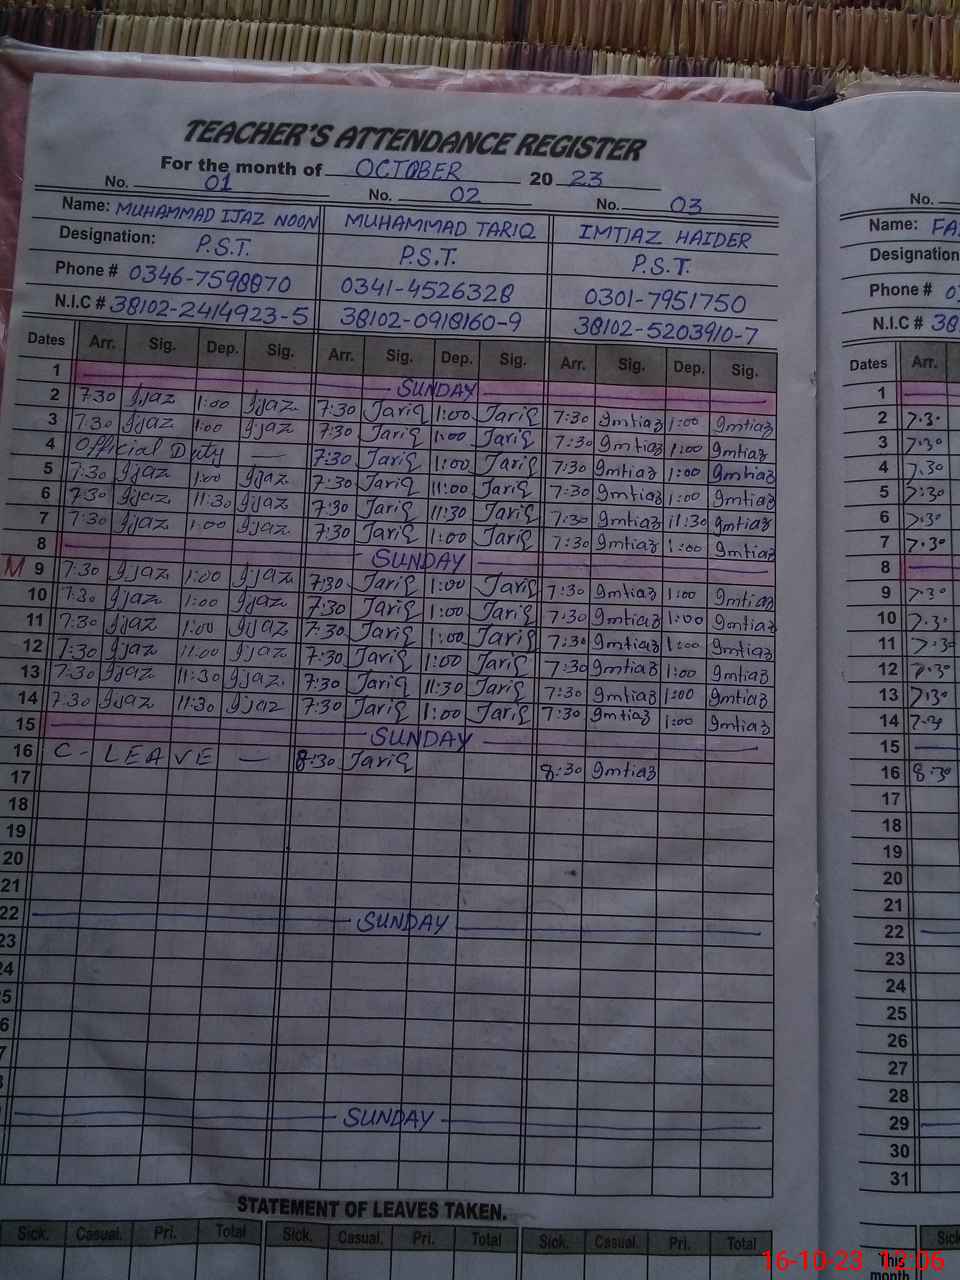 TEACHER'S ATTENDANCE REGISTER
For the month of OCTOBER 2023
No. 01 No. 02 No. 03 No.
Name: MUHAMMAD IJAZ NOON MUHAMMAD TARIQ IMTIAZ HAIDER Name:
Designation: P.S.T. P.S.T. P.S.T. Designation
Phone # 0346-7598870 0341-4526328 0301-7951750 Phone #
N.I.C # 38102-2414923-5 38102-0918160-9 38102-5203910-7 N.I.C # 38
Dates Arr. Sig. Dep. Sig. Arr. Sig. Dep. Sig. Arr. Sig. Dep. Sig. Dates Arr.
1 SUNDAY 1
2 7:30 Ijaz 1:00 Ijaz 7:30 Tariq 1:00 Tariq 7:30 Imtiaz 1:00 Imtiaz 2 7:30
3 7:30 Ijaz 1:00 Ijaz 7:30 Tariq 1:00 Tariq 7:30 Imtiaz 1:00 Imtiaz 3 7:30
4 Official Duty — 7:30 Tariq 1:00 Tariq 7:30 Imtiaz 1:00 Imtiaz 4 7:30
5 7:30 Ijaz 1:00 Ijaz 7:30 Tariq 11:00 Tariq 7:30 Imtiaz 1:00 Imtiaz 5 7:30
6 7:30 Ijaz 11:30 Ijaz 7:30 Tariq 11:30 Tariq 7:30 Imtiaz 11:30 Imtiaz 6 7:30
7 7:30 Ijaz 1:00 Ijaz 7:30 Tariq 1:00 Tariq 7:30 Imtiaz 1:00 Imtiaz 7 7:30
8 SUNDAY 8
M 9 7:30 Ijaz 1:00 Ijaz 7:30 Tariq 1:00 Tariq 7:30 Imtiaz 1:00 Imtiaz 9 7:30
10 7:30 Ijaz 1:00 Ijaz 7:30 Tariq 1:00 Tariq 7:30 Imtiaz 1:00 Imtiaz 10 7:30
11 7:30 Ijaz 1:00 Ijaz 7:30 Tariq 1:00 Tariq 7:30 Imtiaz 1:00 Imtiaz 11 7:30
12 7:30 Ijaz 11:00 Ijaz 7:30 Tariq 1:00 Tariq 7:30 Imtiaz 1:00 Imtiaz 12 7:30
13 7:30 Ijaz 11:30 Ijaz 7:30 Tariq 11:30 Tariq 7:30 Imtiaz 1:00 Imtiaz 13 7:30
14 7:30 Ijaz 11:30 Ijaz 7:30 Tariq 1:00 Tariq 7:30 Imtiaz 1:00 Imtiaz 14 7:30
15 SUNDAY 15
16 C - LEAVE — 8:30 Tariq 8:30 Imtiaz 16 8:30
17 17
18 18
19 19
20 20
21 21
22 SUNDAY 22
23 23
24 24
5 25
6 26
7 27
28
SUNDAY 29
30
31
STATEMENT OF LEAVES TAKEN.
Sick. Casual. Pri. Total Sick. Casual. Pri. Total Sick. Casual. Pri. Total Sick
This month
16-10-23 12:06